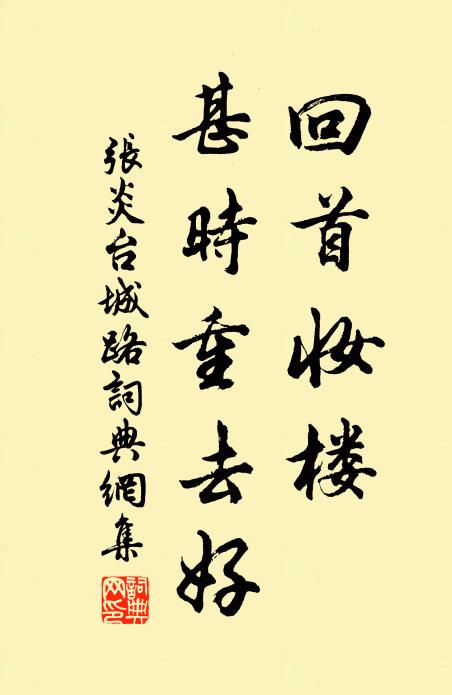 回首妆楼
甚時重去好
張炎台城路詞典網集
詞典网印